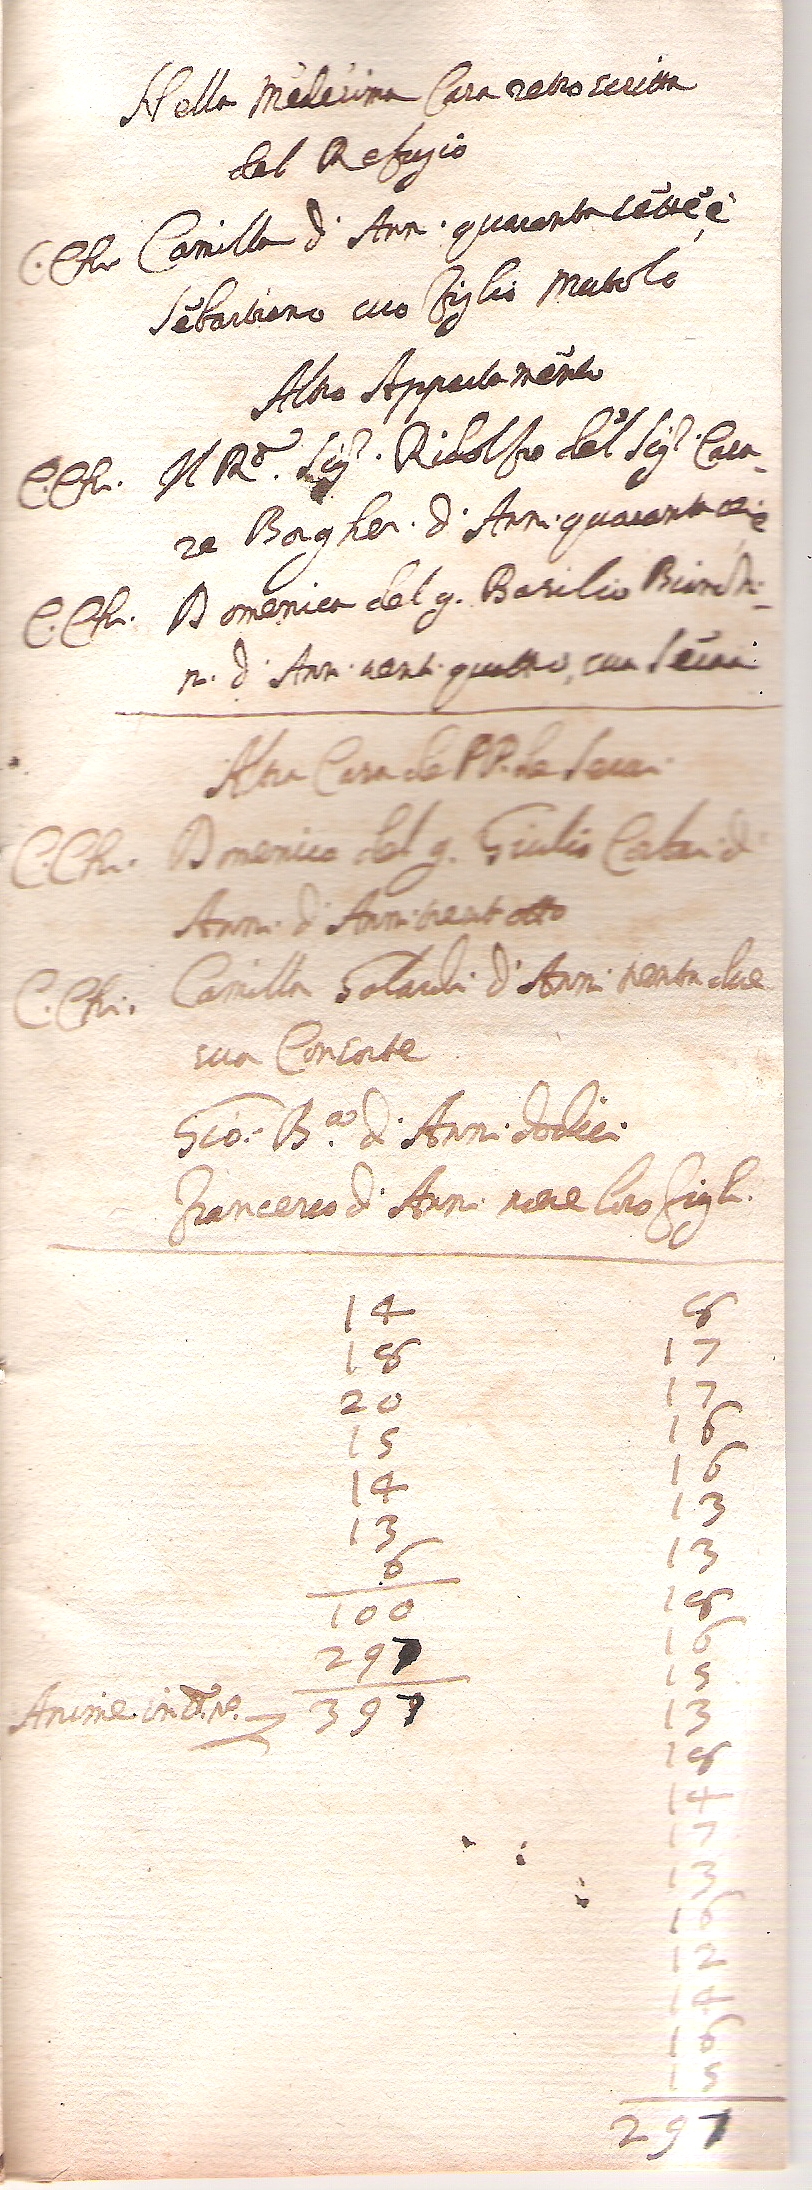 Nella Medesima Casa retroscritta
del Refugio
C.Chr. Camilla d' Ann. quaranta sette, e
Sebastiano suo figlio Mutolo
Altro Appartamento
C.Chr. Il Rdo. Sigr. Ridolfo del Sigr. Cesa-
re Borghesi d' Anni quaranta sei e
C.Chr. Domenica del q. Basilio
n. d' Ann. vent. quattro, sua Serva
Altra Casa de PP. de Servi
C.Chr. Domenico del q. Giulio d'
Anni d' Anni trent otto
C.Chr. Camilla d' Anni trenta due
sua Consorte
Gio: Bta d' Anni dodici
Francesco d' Anni nove loro figli.
14 8
18 17
20 17
15 16
14 16
13 13
6 13
100 18
297 16
Anime in tt.o No. 397 15
13
18
14
17
13
16
12
14
16
15
297